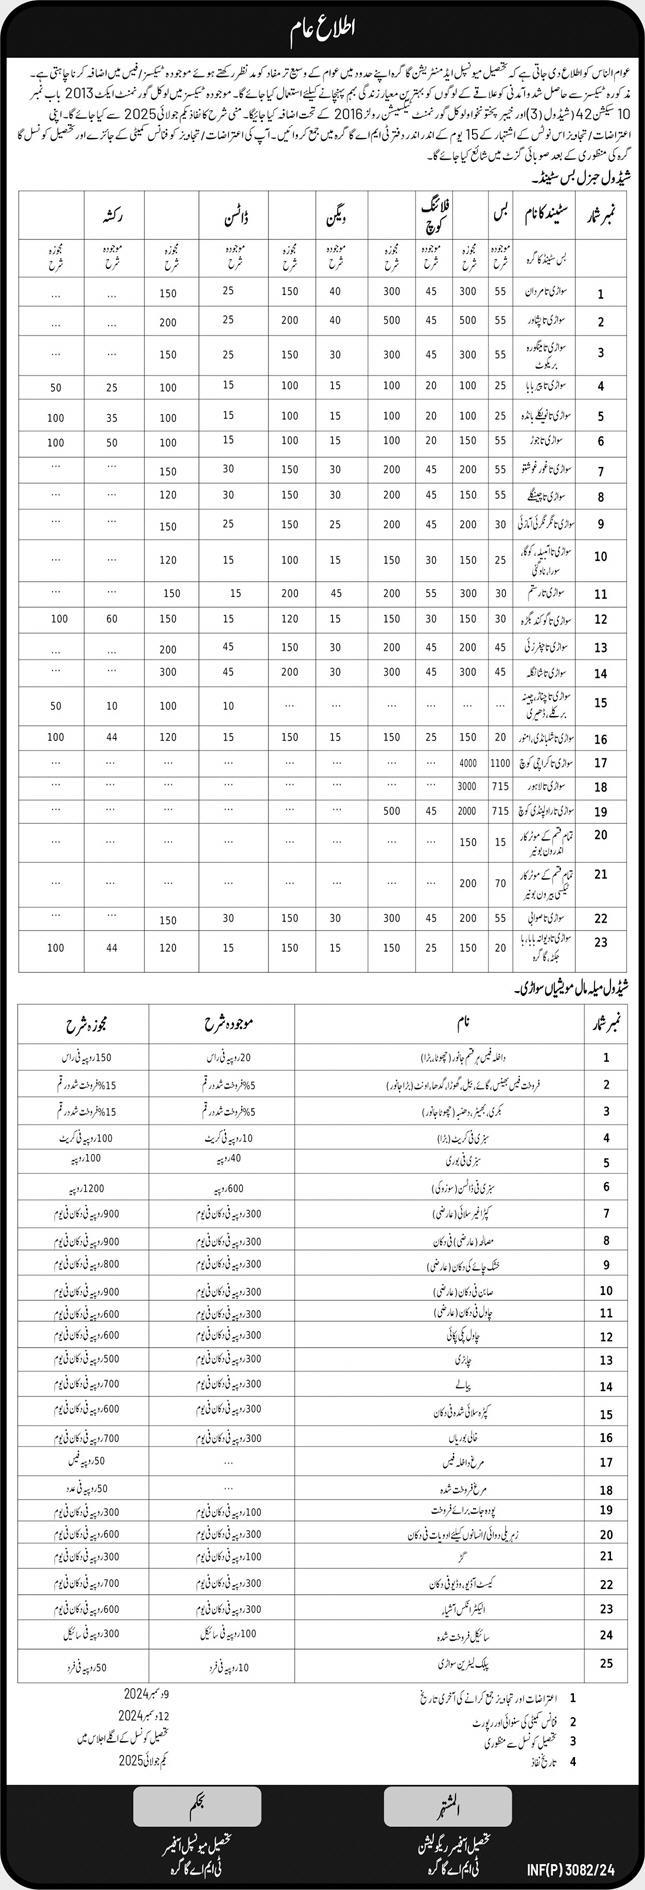 اطلاع عام
عوام الناس کو اطلاع دی جاتی ہے کہ تحصیل میونسپل ایڈمنسٹریشن گاگرہ اپنے حدود میں عوام کے وسیع تر مفاد کو مد نظر رکھتے ہوئے موجودہ ٹیکسز/فیس میں اضافہ کرنا چاہتی ہے۔
مذکورہ ٹیکسز سے حاصل شدہ آمدنی کو علاقے کے لوگوں کو بہترین معیار زندگی بہم پہنچانے کیلئے استعمال کیا جائے گا۔ موجودہ ٹیکسز میں لوکل گورنمنٹ ایکٹ 2013 باب نمبر
10 سیکشن 42 (شیڈول (3) اور خیبر پختونخوا لوکل گورنمنٹ ٹیکسیشن رولز 2016 کے تحت اضافہ کیا جائیگا۔ نئی شرح کا نفاذ یکم جولائی 2025 سے کیا جائے گا۔ اپنی
اعتراضات/تجاویز اس نوٹس کے اشتہار کے 15 یوم کے اندر اندر دفتر ٹی ایم اے گاگرہ میں جمع کروائیں۔ آپ کی اعتراضات/تجاویز کو فنانس کمیٹی کے جائزے اور تحصیل کونسل گا
گرہ کی منظوری کے بعد صوبائی گزٹ میں شائع کیا جائے گا۔
شیڈول جنرل بس سٹینڈ۔
نمبر شمار سٹینڈ کا نام بس فلائنگ کوچ ویگن ڈاٹسن رکشہ
بس سٹینڈ گاگرہ موجودہ شرح مجوزہ شرح موجودہ شرح مجوزہ شرح موجودہ شرح مجوزہ شرح موجودہ شرح مجوزہ شرح موجودہ شرح مجوزہ شرح
1 سواڑی تا مردان 55 300 45 300 40 150 25 150 ... ...
2 سواڑی تا پشاور 55 500 45 500 40 200 25 200 ... ...
3 سواڑی تا مینگورہ بریکوٹ 55 300 45 300 30 150 25 150 ... ...
4 سواڑی تا پیر بابا 25 100 20 100 15 100 15 100 25 50
5 سواڑی تا نویکلے بانڈہ 25 100 20 100 15 100 15 100 35 100
6 سواڑی تا جوڑ 55 150 20 100 15 100 15 100 50 100
7 سواڑی تا غورغوشتو 55 200 45 200 30 150 30 150 ... ...
8 سواڑی تا چینگلے 55 150 45 200 30 150 30 120 ... ...
9 سواڑی تا نگرئی آمازئی 30 200 45 200 25 150 25 150 ... ...
10 سواڑی تا امبیلہ، کوگا، سورا، ناوگئی 25 150 30 150 15 100 15 120 ... ...
11 سواڑی تا رستم 30 300 55 200 45 200 15 150 ... ...
12 سواڑی تا گوکند بگڑہ 30 150 30 150 15 120 15 150 60 100
13 سواڑی تا چغرزئی 45 200 45 200 30 150 45 200 ... ...
14 سواڑی تا شانگلہ 45 300 45 300 30 200 45 300 ... ...
15 سواڑی تا چناڑ، چینہ برکلے، ڈھیری ... ... ... ... ... ... 10 100 10 50
16 سواڑی تا شلبانڈی، امنور 20 150 25 150 15 150 15 120 44 100
17 سواڑی تا کراچی کوچ 1100 4000 ... ... ... ... ... ... ... ...
18 سواڑی تا لاہور 715 3000 ... ... ... ... ... ... ... ...
19 سواڑی تا راولپنڈی کوچ 715 2000 45 500 ... ... ... ... ... ...
20 تمام قسم کے موٹر کار اندرون بونیر 15 150 ... ... ... ... ... ... ... ...
21 تمام قسم کے موٹر کار ٹیکسی بیرون بونیر 70 200 ... ... ... ... ... ... ... ...
22 سواڑی تا صوابی 55 200 45 300 30 150 30 150 ... ...
23 سواڑی تا دیوانہ بابا، گاگرہ 20 150 25 150 15 150 15 120 44 100
شیڈول میلہ مال مویشیاں سواڑی۔
نمبر شمار نام موجودہ شرح مجوزہ شرح
1 داخلہ فیس ہر قسم جانور (چھوٹا، بڑا) 20 روپیہ فی راس 150 روپیہ فی راس
2 فروخت فیس بھینس، گائے، بیل، گھوڑا، گدھا، اونٹ (بڑا جانور) 5% فروخت شدہ رقم 15% فروخت شدہ رقم
3 بکری، بھیڑ، دھنبہ (چھوٹا جانور) 5% فروخت شدہ رقم 15% فروخت شدہ رقم
4 سبزی فی کریٹ (بڑا) 10 روپیہ فی کریٹ 100 روپیہ فی کریٹ
5 سبزی فی بوری 40 روپیہ 100 روپیہ
6 سبزی فی ڈاٹسن (سوزوکی) 600 روپیہ 1200 روپیہ
7 کپڑا غیر سلائی (عارضی) 300 روپیہ فی دکان فی یوم 900 روپیہ فی دکان فی یوم
8 مصالحہ (عارضی) فی دکان 300 روپیہ فی دکان فی یوم 900 روپیہ فی دکان فی یوم
9 خشک چائے کی دکان (عارضی) 300 روپیہ فی دکان فی یوم 800 روپیہ فی دکان فی یوم
10 صابن فی دکان (عارضی) 300 روپیہ فی دکان فی یوم 900 روپیہ فی دکان فی یوم
11 چاول فی دکان (عارضی) 300 روپیہ فی دکان فی یوم 600 روپیہ فی دکان فی یوم
12 چاول پکی پکائی 300 روپیہ فی دکان فی یوم 600 روپیہ فی دکان فی یوم
13 چابڑی 300 روپیہ فی دکان فی یوم 500 روپیہ فی دکان فی یوم
14 پیالے 300 روپیہ فی دکان فی یوم 700 روپیہ فی دکان فی یوم
15 کپڑہ سلائی شدہ فی دکان 300 روپیہ فی دکان فی یوم 600 روپیہ فی دکان فی یوم
16 خالی بوریاں 300 روپیہ فی دکان فی یوم 700 روپیہ فی دکان فی یوم
17 مرغ داخلہ فیس ... 50 روپیہ فیس
18 مرغ فروخت شدہ ... 50 روپیہ فی عدد
19 پودہ جات برائے فروخت 100 روپیہ فی دکان فی یوم 300 روپیہ فی دکان فی یوم
20 زہریلی دوائی/انسانوں کیلئے ادویات فی دکان 300 روپیہ فی دکان فی یوم 600 روپیہ فی دکان فی یوم
21 گڑ 100 روپیہ فی دکان فی یوم 300 روپیہ فی دکان فی یوم
22 کیسٹ آڈیو، وڈیو فی دکان 300 روپیہ فی دکان فی یوم 700 روپیہ فی دکان فی یوم
23 الیکٹرانکس آشیاء 300 روپیہ فی دکان فی یوم 600 روپیہ فی دکان فی یوم
24 سائیکل فروخت شدہ 100 روپیہ فی سائیکل 300 روپیہ فی سائیکل
25 پبلک لیٹرین سواڑی 10 روپیہ فی فرد 50 روپیہ فی فرد
1 اعتراضات اور تجاویز جمع کرانے کی آخری تاریخ 9 دسمبر 2024
2 فنانس کمیٹی کی سنوائی اور رپورٹ 12 دسمبر 2024
3 تحصیل کونسل سے منظوری تحصیل کونسل کے اگلے اجلاس میں
4 تاریخ نفاذ یکم جولائی 2025
المشتہر بحکم
تحصیل آفیسر ریگولیشن تحصیل میونسپل آفیسر
ٹی ایم اے گاگرہ ٹی ایم اے گاگرہ
INF(P) 3082/24